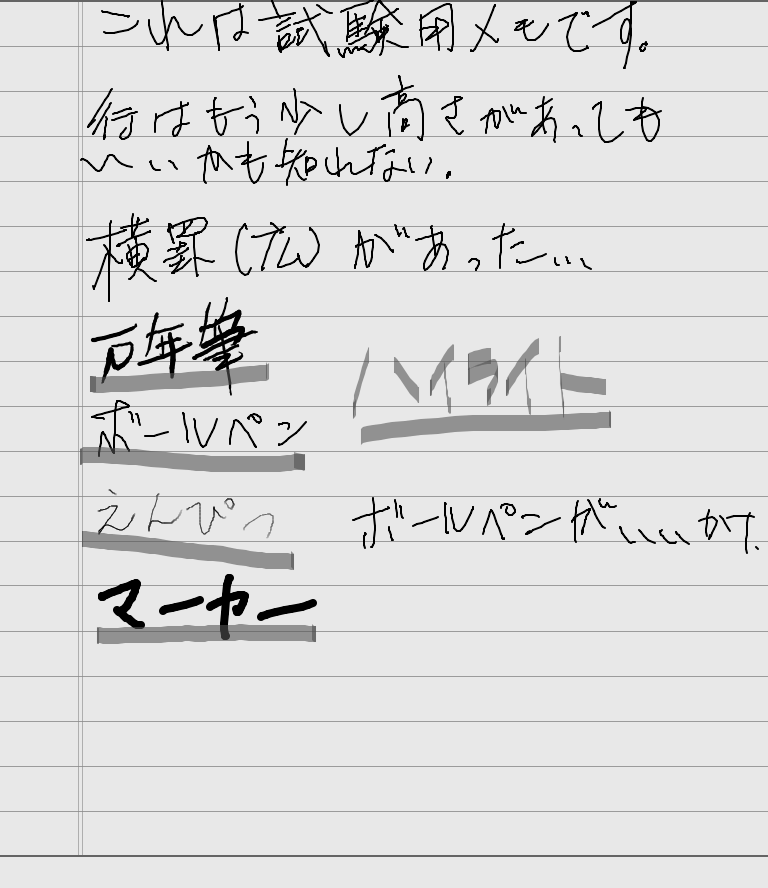 これは試験用メモです。
行はもう少し高さがあっても
いいかも知れない.
横罫(広)があった...
万年筆
ハイライト
ボールペン
えんぴつ
ボールペンがいいかな.
マーカー